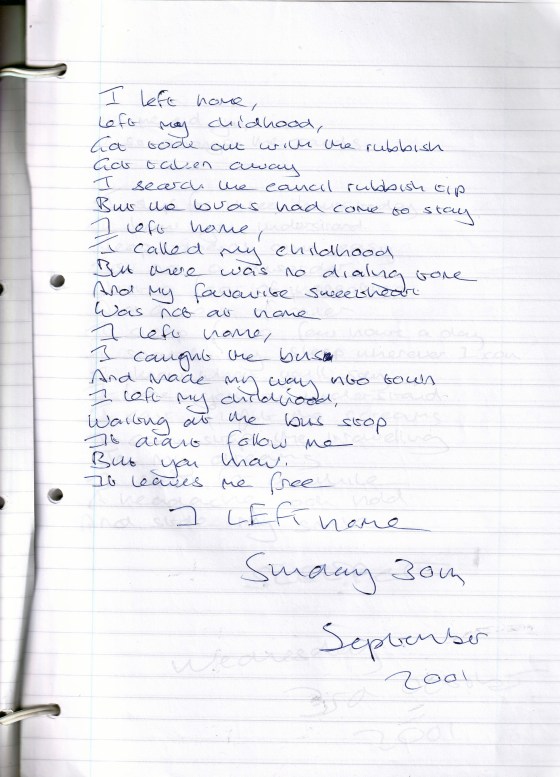 I left home,
Left my childhood,
Got took out with the rubbish
Got taken away
I search the council rubbish tip
But the had come to stay
I left home,
I called my childhood
But there was no dialing tone
And my favourite sweetheart
Was not at home
I left home,
I caught the bus
And made my way into town
I left my childhood,
Waiting at the bus stop
It didnt follow me
But you know.
It leaves me free
I LEFT home
Sunday 30th
September
2001